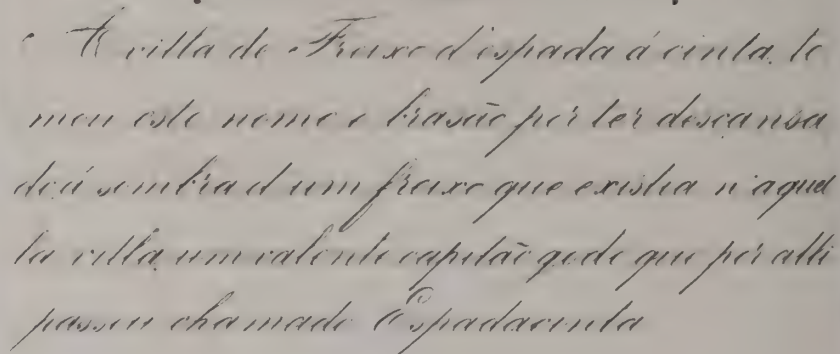 A villa de Freixo d'espada á cinta, to
mou este nome e brasão por ter descansa
do á sombra d'um freixo que existia n'aquel
la villa um valente capitão godo que por alli
passou chamado Espadacinta